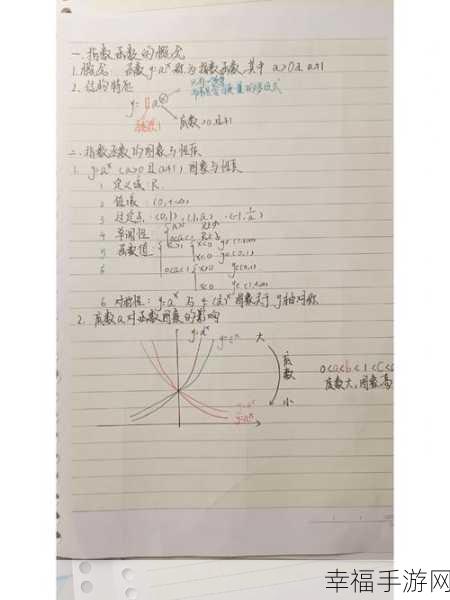 一.指数函数的概念
1.概念 函数y=aˣ称为指数函数,其中a>0且a≠1
2.结构特征
y=1·aˣ
系数1
底数>0且≠1
二.指数函数的图象与性质
1. y=aˣ(a>0且a≠1)图象与性质
1 定义域:R
2 值域:(0,+∞)
3 过定点:(0,1),(1,a),(-1,1/a)
4 单调性 a>1 R上
0<a<1 R上
5 函数值 a>1 x>0 y∈(1,+∞)
x<0 y∈(0,1)
6 0<a<1 x>0 y∈(0,1)
x<0 y∈(1,+∞)
6 对称性:y=aˣ与y=(1/a)ˣ图象关于y轴对称
2.底数a对函数图象的影响
大
底数
小
0<a<b<1<c<
底数大,图象高
幸福手游网